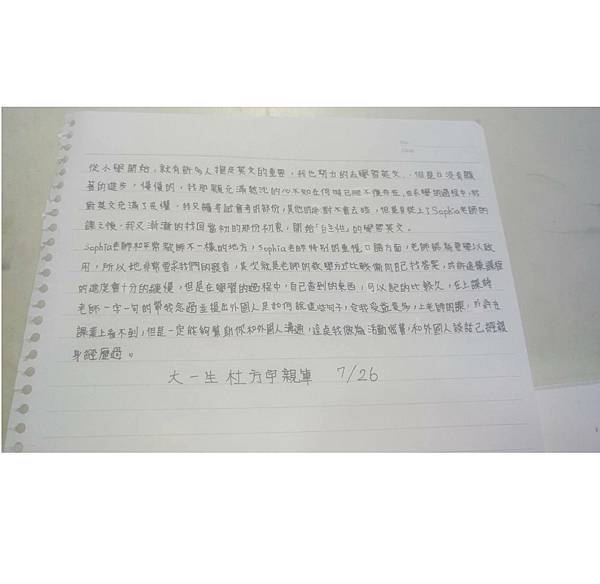 從小學開始,就有許多人提及英文的重要,我也努力的去學習英文,但是口沒有顯
著的進步,慢慢的,我那顆充滿熱忱的心不知在何時已經不復存在,在求學的過程中,對
對英文充滿了畏懼,我只讀考試會考的部份,其他的絕對不會去碰,但是自從上了Sophia老師的
課之後,我又漸漸的找回當初的那份初衷,開始「自主性」的學習英文。
Sophia老師和平常教師不一樣的地方,Sophia老師特別的重視口語方面,老師認為要學以致
用,所以她非常要求我們的發音,其次就是老師的教學方式比較偏向自己找答案,或許這樣課程
的進度會十分的緩慢,但是在學習的過程中,自己查到的東西,可以記的比較久,在上課時
老師一字一句的帶我念過並提出外國人是如何說這些句子,令我受益良多,上老師的課,或許在
課業上看不到,但是一定能夠幫助你和外國人溝通,這是我做為活動
身經歷過。
大一生 杜方宇親筆 7/26